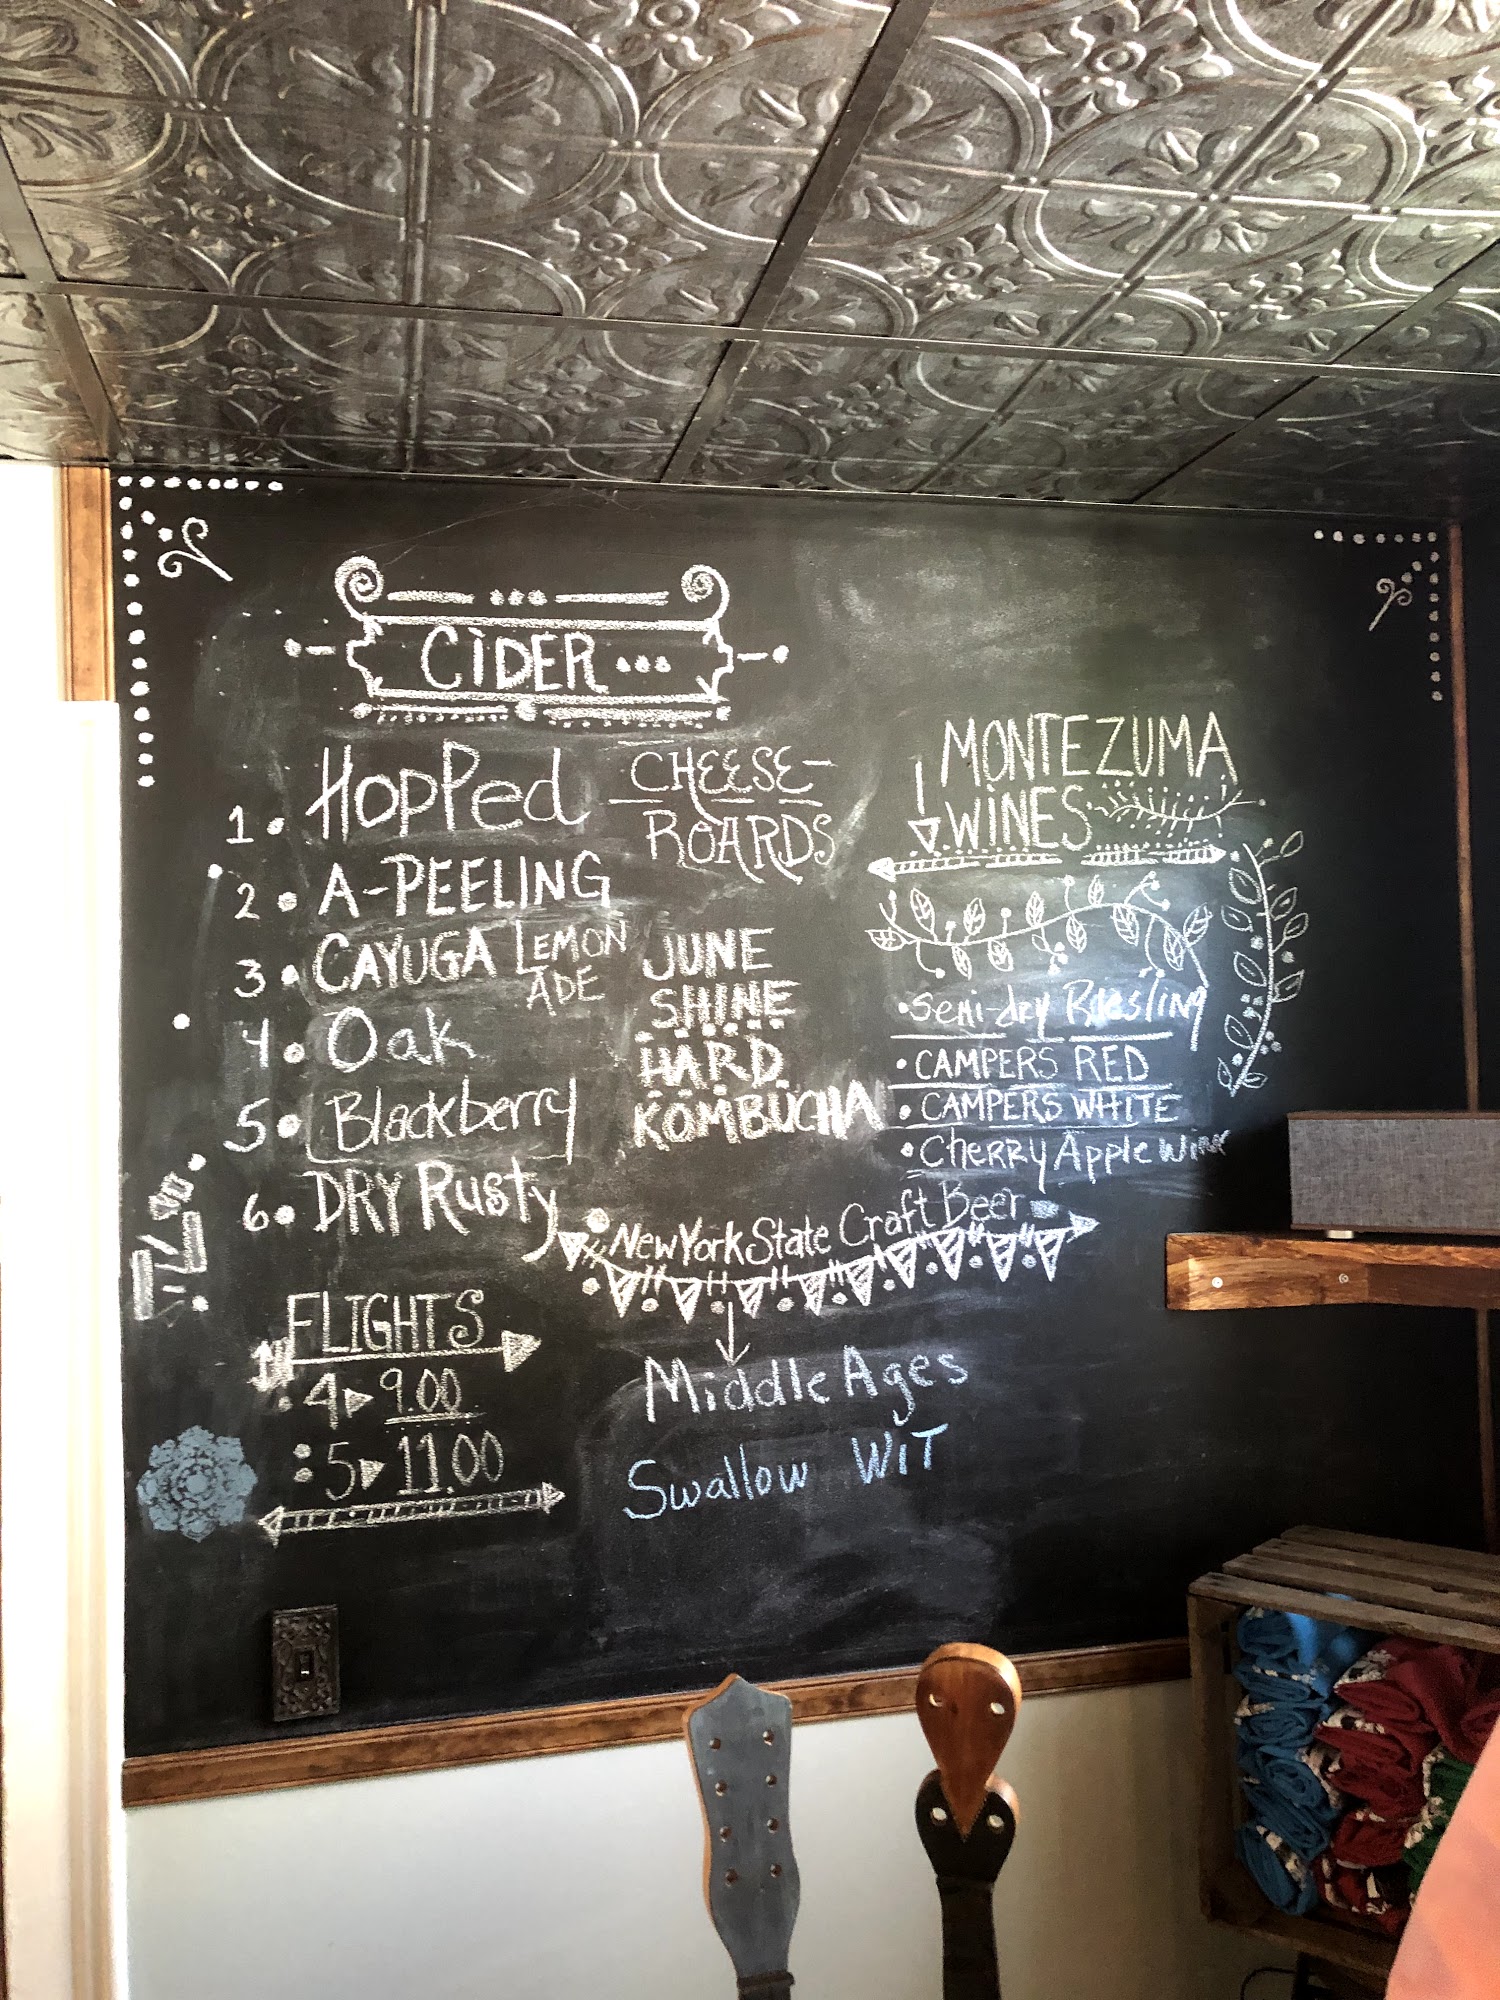 CIDER...
1. Hopped
2. A-PEELING
3. CAYUGA LEMON
ADE
4. Oak
5. Blackberry
6. DRY Rusty
FLIGHTS
4 9.00
5 11.00
CHEESE-
BOARDS
JUNE
SHINE
HARD
KOMBUCHA
MONTEZUMA
WINES
• Semi-dry Riesling
• CAMPERS RED
• CAMPERS WHITE
• Cherry Apple Wine
New York State Craft Beer
Middle Ages
Swallow WiT